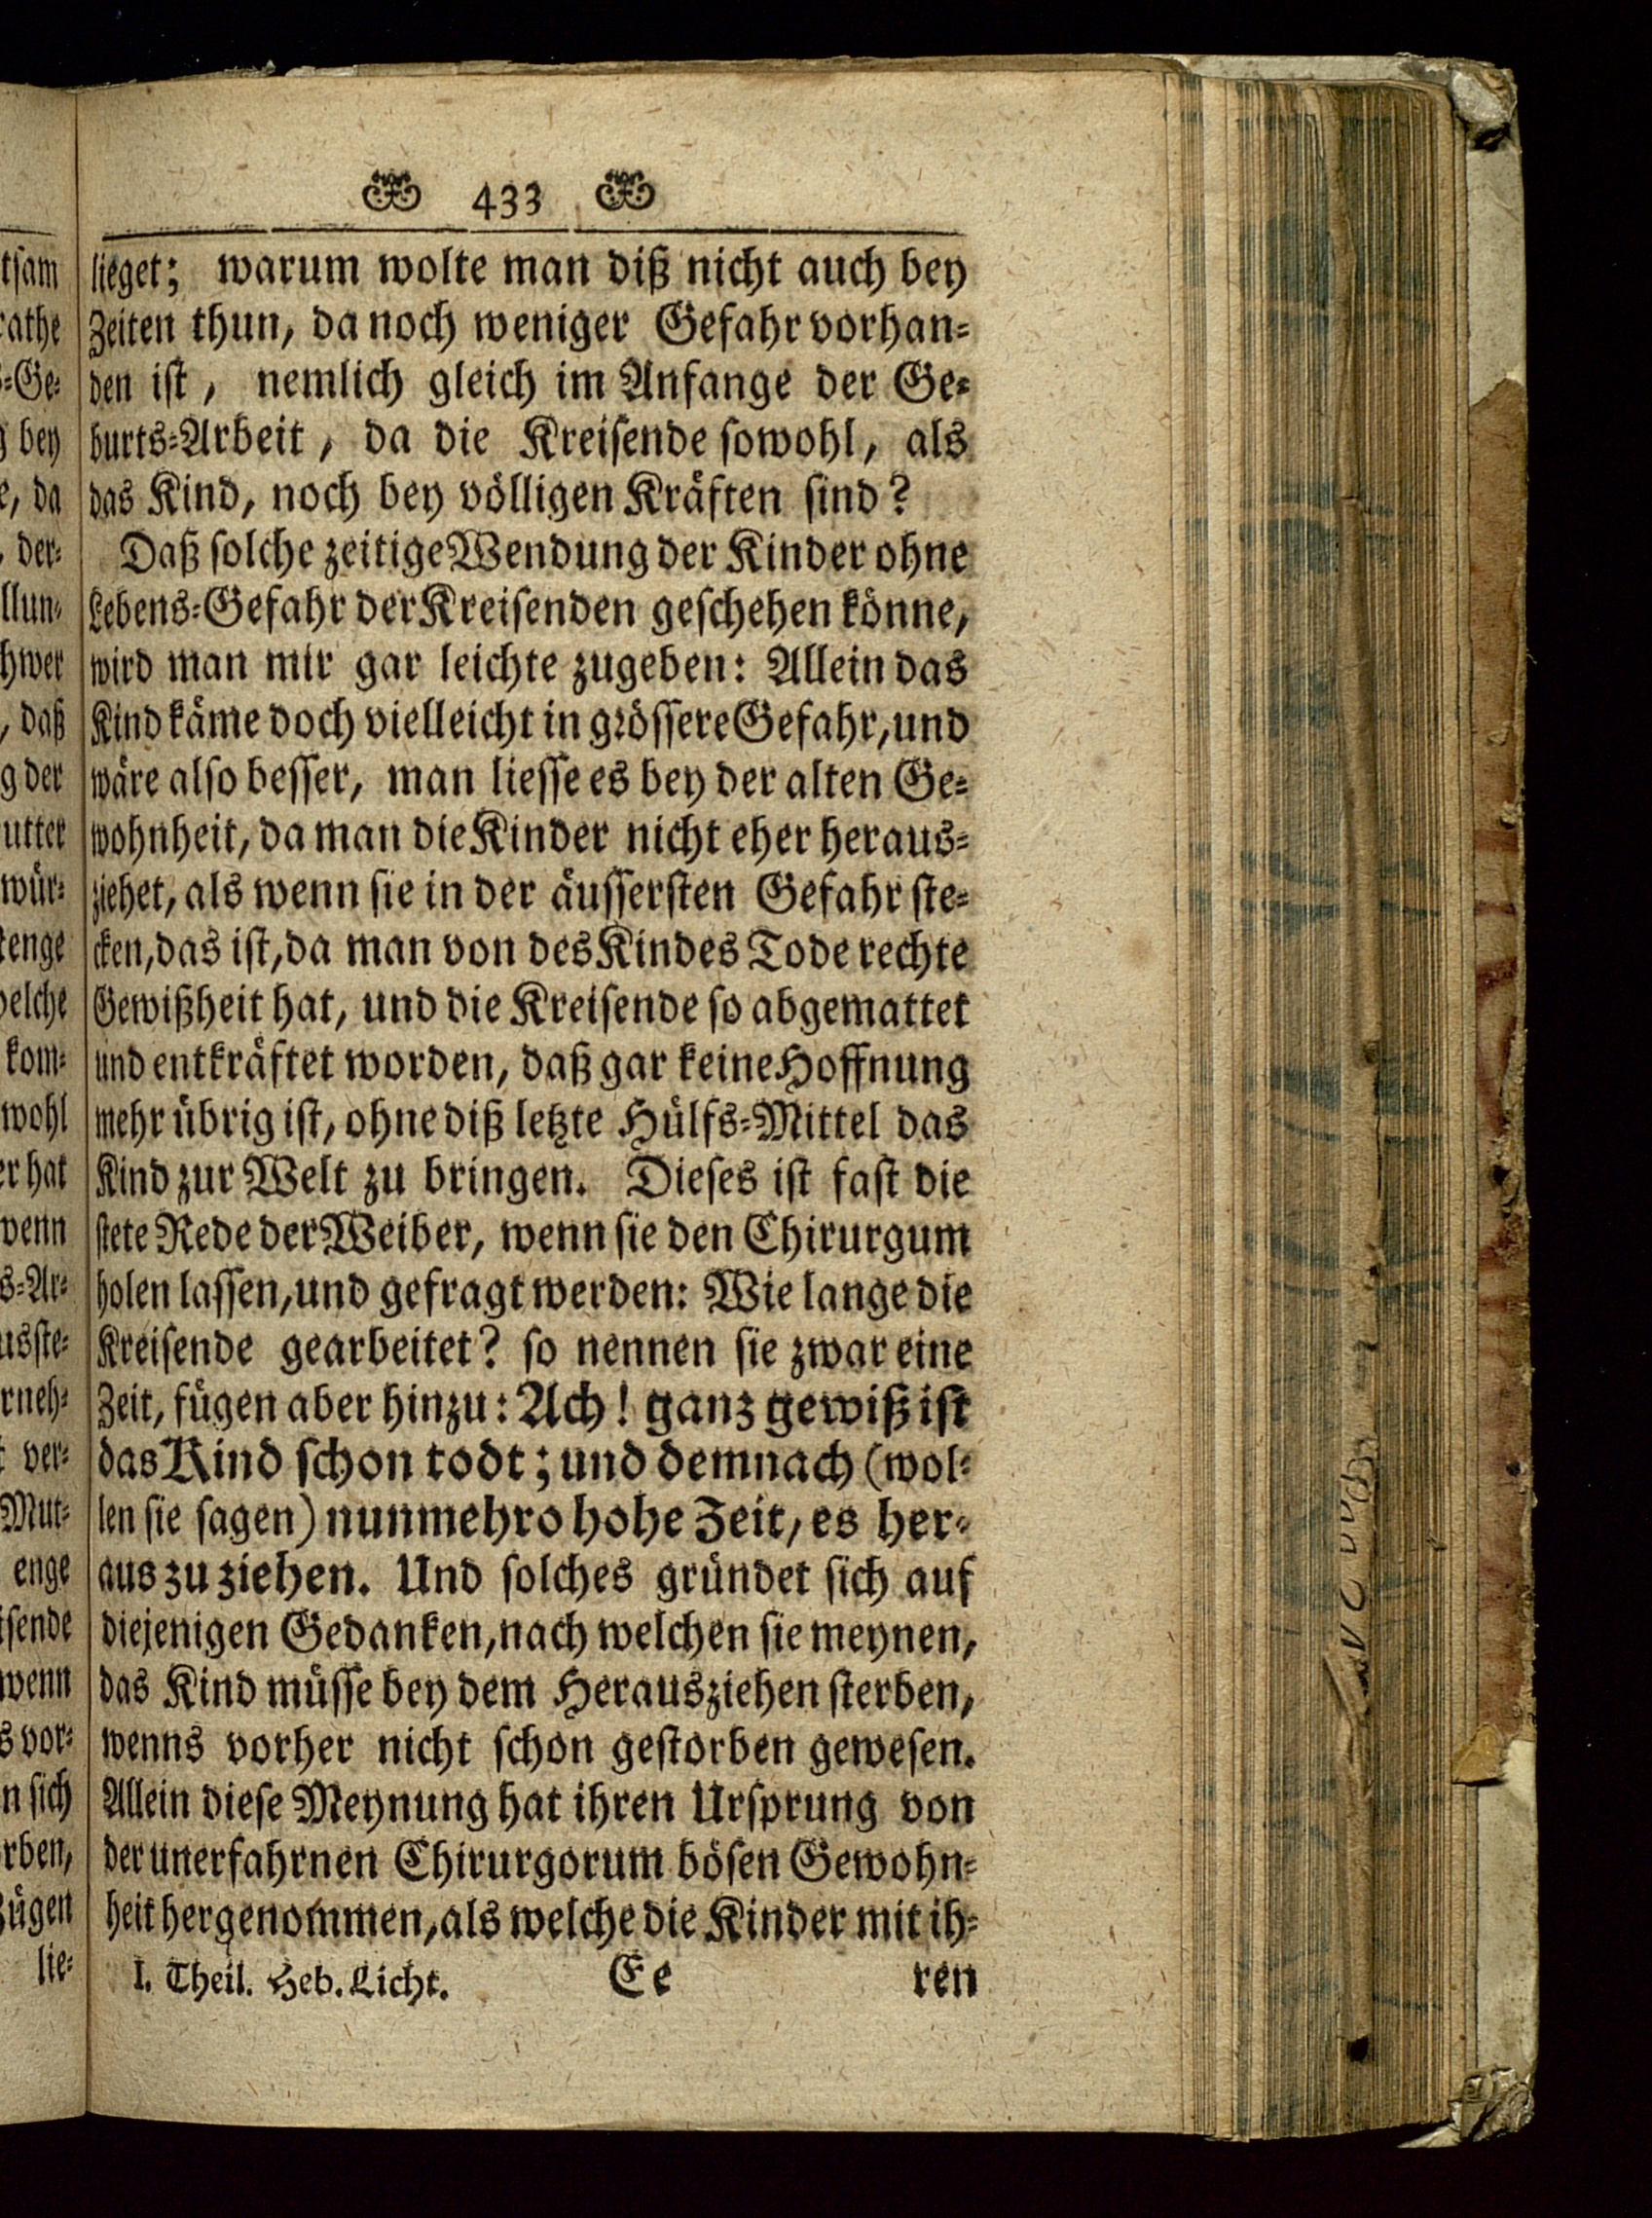 433
lieget; warum wolte man diß nicht auch bey
Zeiten thun, da noch weniger Gefahr vorhan-
den ist, nemlich gleich im Anfange der Ge-
burts-Arbeit, da die Kreisende sowohl, als
das Kind, noch bey völligen Kräften sind?
Daß solche zeitige Wendung der Kinder ohne
Lebens-Gefahr der Kreisenden geschehen könne,
wird man mir gar leichte zugeben: Allein das
Kind käme doch vielleicht in grössere Gefahr, und
wäre also besser, man liesse es bey der alten Ge-
wohnheit, da man die Kinder nicht eher heraus-
ziehet, als wenn sie in der äussersten Gefahr ste-
cken, das ist, da man von des Kindes Tode rechte
Gewißheit hat, und die Kreisende so abgemattet
und entkräftet worden, daß gar keine Hoffnung
mehr übrig ist, ohne diß letzte Hülfs-Mittel das
Kind zur Welt zu bringen. Dieses ist fast die
stete Rede der Weiber, wenn sie den Chirurgum
holen lassen, und gefragt werden: Wie lange die
Kreisende gearbeitet? so nennen sie zwar eine
Zeit, fügen aber hinzu: Ach! ganz gewiß ist
das Kind schon todt; und demnach (wol-
len sie sagen) nunmehro hohe Zeit, es her-
aus zu ziehen. Und solches gründet sich auf
diejenigen Gedanken, nach welchen sie meynen,
das Kind müsse bey dem Herausziehen sterben,
wenns vorher nicht schon gestorben gewesen.
Allein diese Meynung hat ihren Ursprung von
der unerfahrnen Chirurgorum bösen Gewohn-
heit hergenommen, als welche die Kinder mit ih-
I. Theil. Heb. Licht. Ee ren